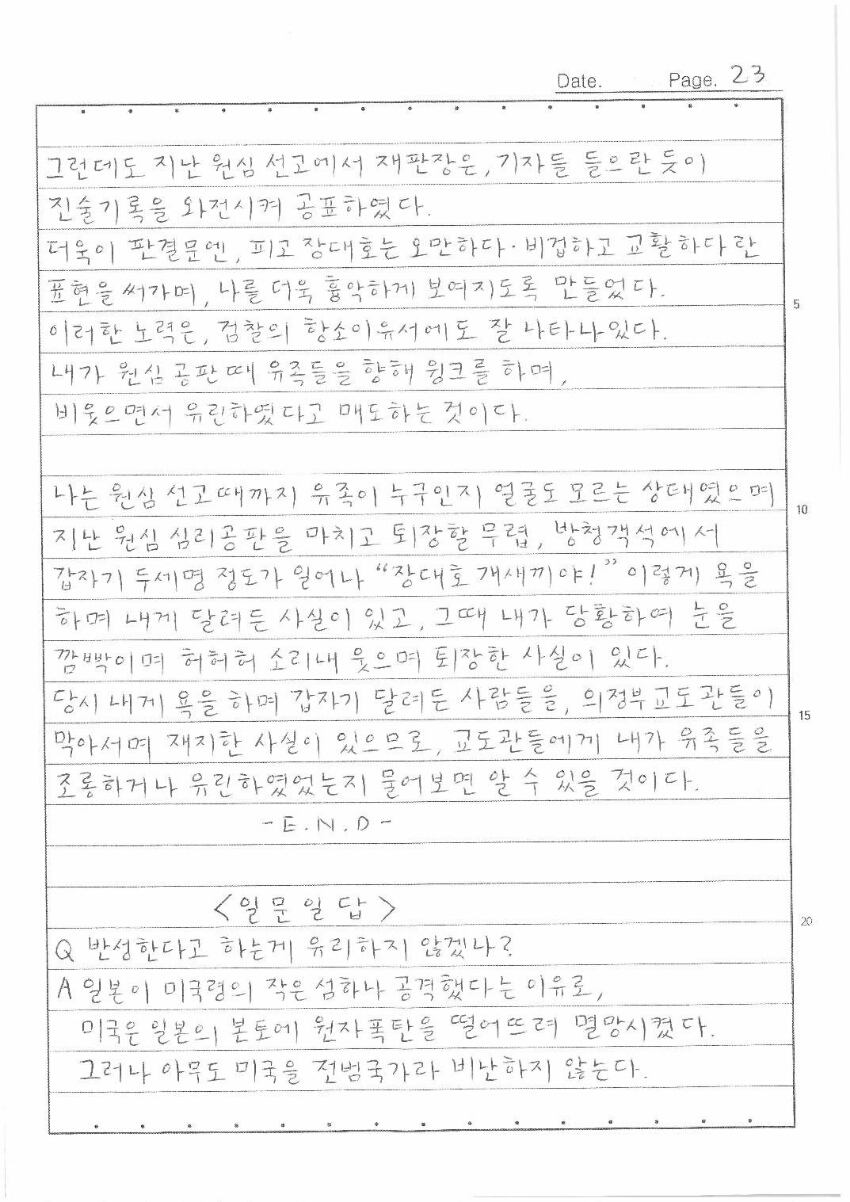 Date. Page. 23
그런데도 지난 원심 선고에서 재판장은, 기자들 들으란 듯이
진술기록을 와전시켜 공표하였다.
더욱이 판결문엔, 피고 장대호는 오만하다·비겁하고 교활하다란
표현을 써가며, 나를 더욱 흉악하게 보여지도록 만들었다.
5
이러한 노력은, 검찰의 항소이유서에도 잘 나타나있다.
내가 원심 공판때 유족들을 향해 윙크를 하며,
비웃으면서 유린하였다고 매도하는 것이다.
나는 원심 선고때까지 유족이 누구인지 얼굴도 모르는 상태였으며
10
지난 원심 심리공판을 마치고 퇴장할 무렵, 방청객석에서
갑자기 두세명 정도가 일어나 "장대호 개새끼야!" 이렇게 욕을
하며 내게 달려든 사실이 있고, 그때 내가 당황하여 눈을
깜빡이며 허허허 소리내 웃으며 퇴장한 사실이 있다.
당시 내게 욕을 하며 갑자기 달려든 사람들을, 의정부교도관들이
15
막아서며 재지한 사실이 있으므로, 교도관들에게 내가 유족들을
조롱하거나 유린하였었는지 물어보면 알 수 있을 것이다.
-E.N.D-
<일문일답>
20
Q 반성한다고 하는게 유리하지 않겠나?
A 일본이 미국령의 작은 섬하나 공격했다는 이유로,
미국은 일본의 본토에 원자폭탄을 떨어뜨려 멸망시켰다.
그러나 아무도 미국을 전범국가라 비난하지 않는다.